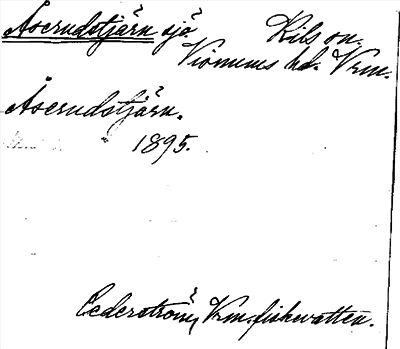 Åserudstjärn sjö. Kils sn.
Visnums hd. Vrm.
Åserudstjärn.
" 1895.
Cederström, Vrm. fiskevatten.